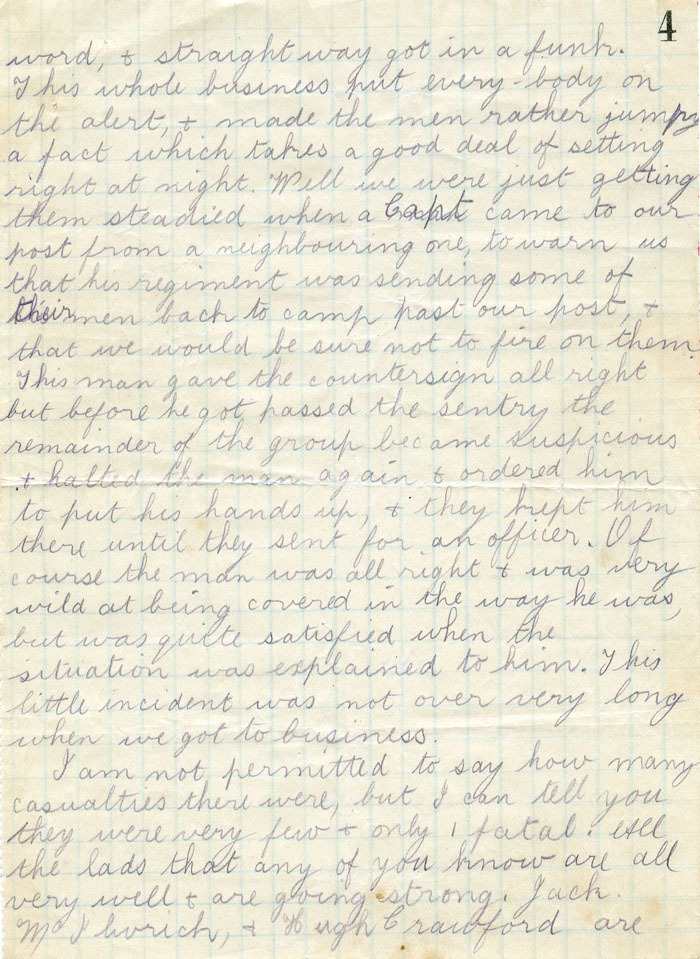 4
word, & straight way got in a funk.
This whole business put every-body on
the alert, & made the men rather jumpy
a fact which takes a good deal of setting
right at night. Well we were just getting
them steadied when a Capt came to our
post from a neighbouring one, to warn us
that his regiment was sending some of
their men back to camp past our post, &
that we would be sure not to fire on them.
This man gave the countersign all right
but before he got passed the sentry the
remainder of the group became suspicious
& halted the man again & ordered him
to put his hands up, & they kept him
there until they sent for an officer. Of
course the man was all right & was very
wild at being covered in the way he was,
but was quite satisfied when the
situation was explained to him. This
little incident was not over very long
when we got to business.
I am not permitted to say how many
casualties there were, but I can tell you
they were very few & only 1 fatal. All
the lads that any of you know are all
very well & are going strong. Jack
Mc Ilwrick, & Hugh Crawford are